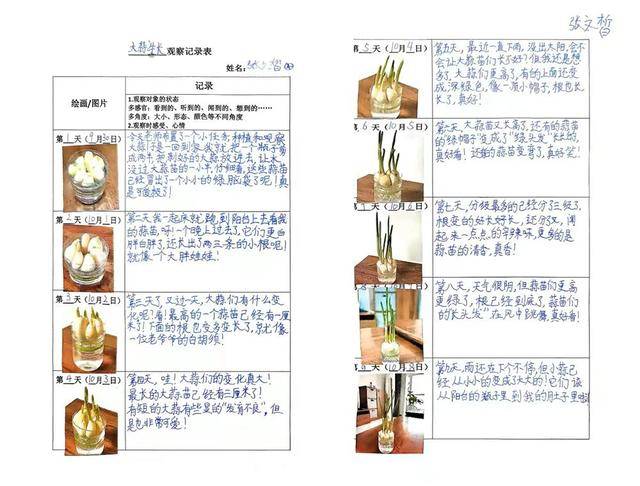 大蒜生长 观察记录表
姓名：张文哲
绘画/图片
记录
1.观察对象的状态
多感官：看到的、听到的、闻到的、想到的……
多角度：大小、形态、颜色等不同角度
2.观察时感受、心情
第1天（9月30日）
今天老师布置了一个小任务：种植和观察
大蒜子。是一回到家我就把一个瓶子剪
成两半，把剥好的大蒜放进去，让水
没过大蒜苗的一小半。仔细看，这些蒜苗
已经冒出了一个个小的绿脑袋了呢！真
是可爱极了！
第2天（10月1日）
第二天我一起床就跑到阳台上去看我
的蒜苗，呀！一个晚上过去了，它们更白
胖白胖了，还长出了两三条的小根呢！
就像一个大胖娃娃！
第3天（10月2日）
第三天了，又过一天，大蒜们有什么变
化呢？看！最高的一个蒜苗已经有一厘
米了！下面的根也变多变长了，就像
一位老爷爷的白胡须！
第4天（10月3日）
第四天，哇！大蒜们的变化真大！
最长的大蒜苗已经有三厘米了！
有短的大蒜有些是的“发育不良”，但
是也非常可爱！
张文哲
第5天（10月4日）
第五天，最近一直下雨，没出太阳，会不
会让大蒜苗们长了好？但我还是想
多了，大蒜苗们更高了，有的上面还变
成深绿色，像一顶小帽子，根也长
长了，真好！
第6天（10月5日）
第六天，大蒜苗又长高了，还有的蒜苗
的绿帽子变成了“绿头发”丝丝的，
真好看！还有的蒜苗变弯了，真好笑！
第7天（10月6日）
第七天，分级最多的已经分了三级了，
根变的好长好长，还分叉，闻
起来一点点的辛辣味，更多的是
蒜苗的清香，真香！
第八天，天气很阴，但蒜苗们更高
更绿了，根已经到底了，蒜苗们
的“长头发”在风中跳舞，真好看！
第九天，雨还在下个不停，但小蒜已
经从小小的变成了大大的！它们该
从阳台的瓶子里到我的肚子里啦！